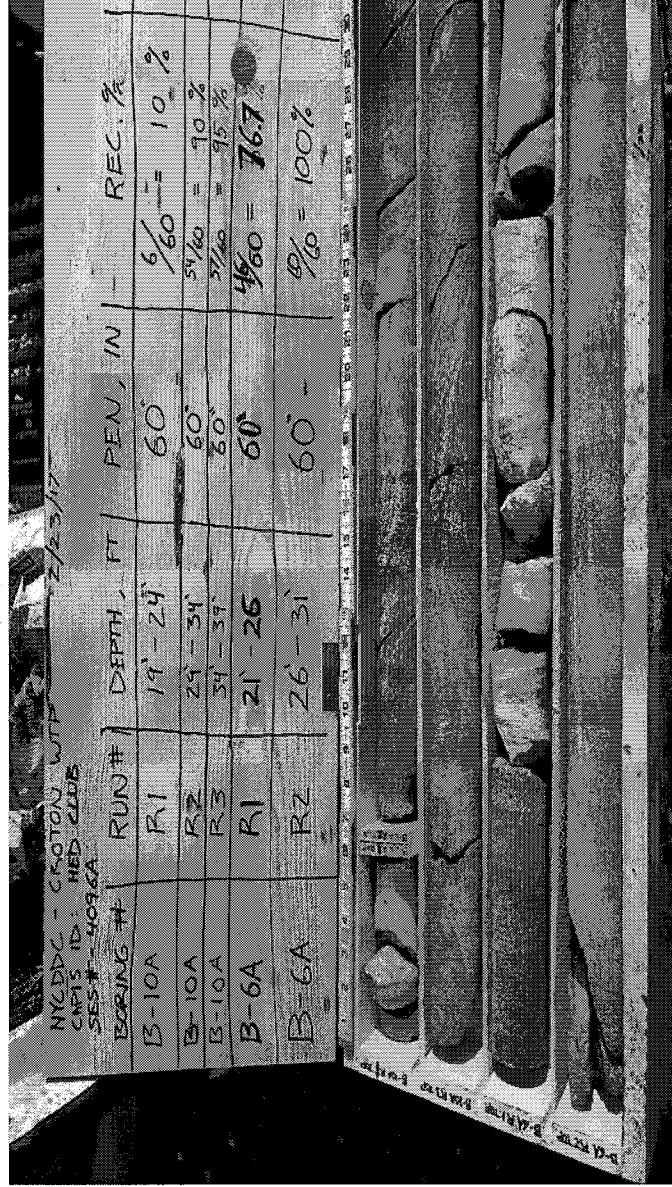 NYCDDC - CROTON WTP 2/23/17
CAPIS ID: HED CLUB
SES# - 4096A
BORING # RUN # DEPTH, FT PEN, IN REC. %
B-10A R1 19' - 24' 60" 6/60 = 10 %
B-10A R2 29' - 34' 60" 54/60 = 90 %
B-10A R3 34' - 39' 60" 57/60 = 95 %
B-6A R1 21' - 26 60" 46/60 = 76.7 %
B-6A R2 26' - 31' 60" 60/60 = 100%